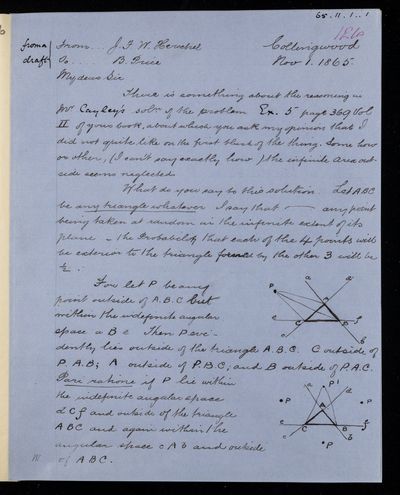 65.11.1..1
186
from a
draft
From... J. F. W. Herschel
Collingwood
To..... B. Price
Nov 1. 1865.
My dear Sir
There is something about the reasoning in
Mr Cayley's soln of the problem Ex. 5 page 369 Vol
II of your book, about which you ask my opinion that I
did not quite like on the first blush of the thing. Some how
or other, (I can't say exactly how) the infinite area out-
side seems neglected
What do you say to this solution Let ABC
be any triangle whatever I say that — any point
being taken at random in the infinite extent of its
plane — the Probability that each of the 4 points will
be exterior to the triangle formed by the other 3 will be
½.
For let P be any
point outside of A.B.C but
within the indefinite angular
space a B c Then P evi-
dently lies outside of the triangle A.B.C. C outside of
P.A.B; A outside of P.B.C; and B outside of P.A.C.
Pari ratione if P lie within
the indefinite angular space
and outside of the triangle
ABC and again within the
angular space c A b and outside
of ABC.